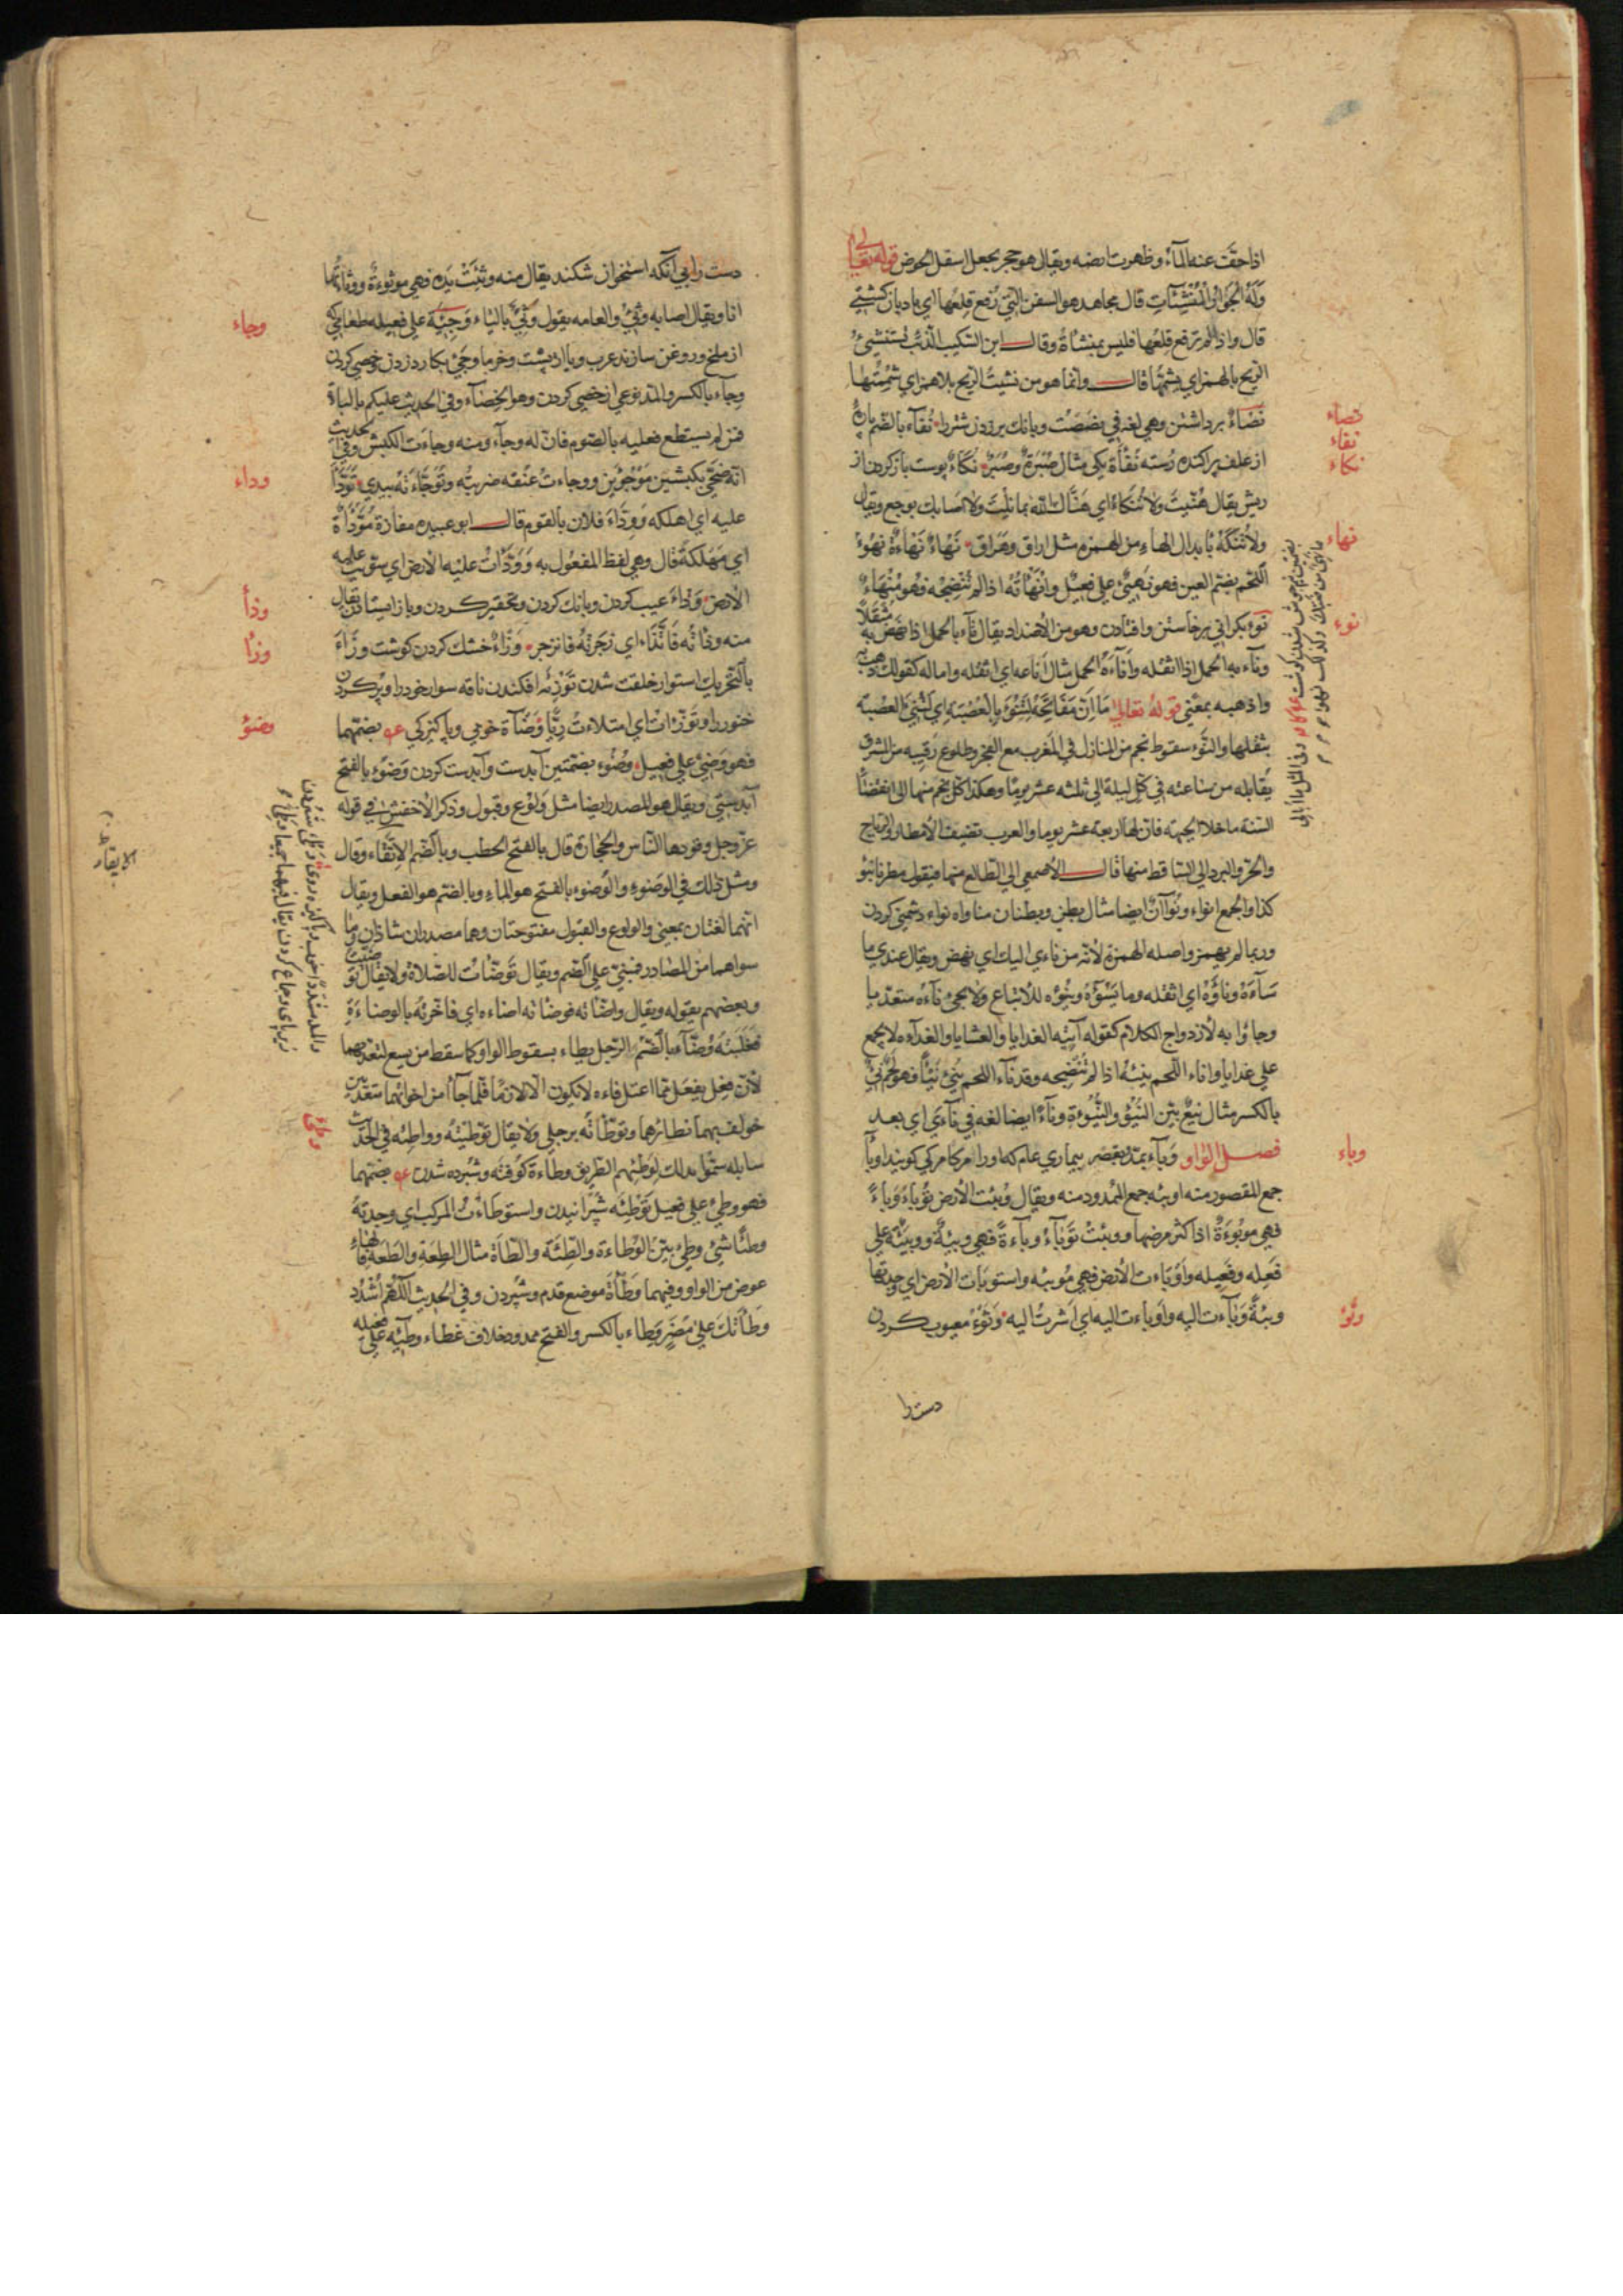 اذا جفّت عنه الماء وظهرت ارضه ويقال هو حجر يجعل اسفل الحوض قوله تعالى
وَلَهُ الْجَوَارِ الْمُنْشَئَاتِ قال مجاهد هو السفن التي رفع قلعها اي بادبان كشتي
قال واذا لم ترفع قلعها فليس بمنشاة وقال ابن السكيت الذئب يستنشئ
الريح بالهمز اي يشمّها قال وانما هو من نشيت الريح بلا همز اي شممتها
نصاء برداشتن وهي لغه في نصصت وبانك برزدن شتر را نقاء بالضم پاره
از علف پراكنده رسته نقأة يكي مثال صُبْرَة وصُبَر نكاء پوست باز كردن از
ريش يقال هُنّيتَ ولا تُنكاء اي هنّاك الله بما نلت ولا اصابك بوجع ويقال
ولا تُنكَه بابدال الهاء من الهمزه مثل اراق وهراق نهاء نهاءة نهوء
اللحم بضم العين فهو نهيء على فعيل وانهأته اذا لم تنضجه فهو منهاء
نوء بكراني برخاستن وافتادن وهو من الاضداد يقال ناء بالحمل اذا نهض به مثقلا
وناء به الحمل اذا اثقله واناءه الحمل مثال اناعه اي اثقله واماله كقولك ذهب به
واذهبه بمعني قوله تعالى مَا إِنَّ مَفَاتِحَهُ لَتَنُوءُ بِالْعُصْبَةِ اي لتنيء العصبة
بثقلها والنوء سقوط نجم من المنازل في المغرب مع الفجر وطلوع رقيبه من المشرق
يقابله من ساعته في كل ليلة الي ثلثه عشر يوما وهكذا كل نجم منها الي انقضاء
السنة ما خلا الجبهة فان لها اربعة عشر يوما والعرب تضيف الامطار والرياح
والحر والبرد الي الساقط منها قال الاصمعي الي الطالع منها فيقول مطرنا بنوء
كذا والجمع انواء ونوآن ايضا مثال بطن وبطنان مناواه نواء دشمني كردن
وربما لم يهمز واصله الهمزة لانه من ناء اليك اي نهض ويقال عندي ما
ساءه وناءه اي اثقله وما يسوءه وينوءه للاتباع ولا يجئ ناءه متعديا
وجاؤا به لازدواج الكلام كقوله آتيه الغدايا والعشايا والغداه لا يجمع
علي غدايا واناء اللحم ينيئه اذا لم تنضجه وقد ناء اللحم ينئ نيئا فهو لحم نيء
بالكسر مثال نيع بين النيوء والنيوءة وناء ايضا لغه في نأى اي بعد
فصل الواو وباء يمد ويقصر بيماري عام كه اورا مركا مركي كويند اوبا
جمع المقصور منه اوبئه جمع الممدود منه ويقال وبئت الارض توباء وباء
فهي موبوءة اذا كثر مرضها ووبئت توباء وباءة فهي وبيئة ووبئة علي
فعله وفعيله واوباءت الارض فهي موبئه واستوبات الارض اي وجدتها
وبئة وباءت اليه واوباءت اليه اي اشرت اليه وثوء معيوب كردن
دست را
نصاء
نقاء
نكاء
نهاء
نوء
وباء
وثؤ
دست را بي آنكه استخوان شكند يقال منه وثئت يده فهي موثوءة ووثأتها
انا ويقال اصابه وثئ والعامه يقول وثي بالياء وجيئة علي فعيله طعامي كه
از ملخ وروغن سازند عرب ويا از پست وخرما وجئ بكارد زدن وخصي كردن
وجاء بالكسر والمد نوعي از خصي كردن وهو الخصاء وفي الحديث عليكم بالباءة
فمن لم يستطع فعليه بالصوم فانه له وجاء ومنه وجاءت الكبش وفي الحديث
انه ضحى بكبشين موجوئين ووجاءت عنقه ضربته وتوجاءته بيدي تودّأ
عليه اي اهلكه وودّاء فلان بالقوم قال ابو عبيده مفازة مودّأة
اي مهلكة قال وهي لفظ المفعول به وودّأت عليه الارض اي سويت عليه
الارض وذاء عيب كردن وبانك كردن وتحقير كردن وباز ايستادن يقال
منه وذاته فاتّذاء اي زجرته فانزجر وزاء خشك كردن كوشت وزاء
بالتحريك استوار خلقت شدن توزئه افكندن ناقه سوار خود را وپر كردن
خنور را وتوزّات اي امتلاءت ريّا وضاءة خوبي وپاكيزكي بضمتهما
فهو وضئ علي فعيل وضوء بضمتين آبدست وآبدست كردن وضوء بالفتح
آبدستي ويقال هو المصدر ايضا مثل ولوع وقبول وذكر الاخفش في قوله
عز وجل وقودها الناس والحجارة قال بالفتح الحطب وبالضم الاتقاء وقال
ومثل ذلك في الوضوء والوضوء بالفتح هو الماء وبالضم هو الفعل ويقال
انهما لغتان بمعني والولوع والقبول مفتوحتان وهما مصدران شاذان وما
سواهما من المصادر فبني علي الضم ويقال توضأت للصلاة ولا يقال توضيت
وبعضهم يقوله ويقال واضأته فوضأته اضاءه اي فاخرته بالوضاءة
فغلبته وضّاء بالضم الرجل يطاء بسقوط الواو كما سقط من يسع لتعديهما
لان فعل يفعل مما اعتل فاءه لا يكون الا لازما فلما جاآ من اخواتهما متعديين
خولف بهما نظائرهما وتوطأته برجلي ولا يقال توطيته وواطئه في الحديث
سابله سموا بذلك لوطئهم الطريق وطاءة كوفته وسپرده شدن بضمتهما
فهو وطئ علي فعيل توطئه سپرانيدن واستوطاءت المركب اي وجدته
وطئا شئ وطئ بين الوطاءة والطئة والطأة مثال الطعة والطعة فالهاء
عوض من الواو وفيهما وطأة موضع قدم وسپردن وفي الحديث اللهم اشدد
وطأتك علي مضر وطاء بالكسر والفتح ممدود خلاف غطاء وطيئه علي فعيله
وجاء
وداء
وذأ
وزأ
وضؤ